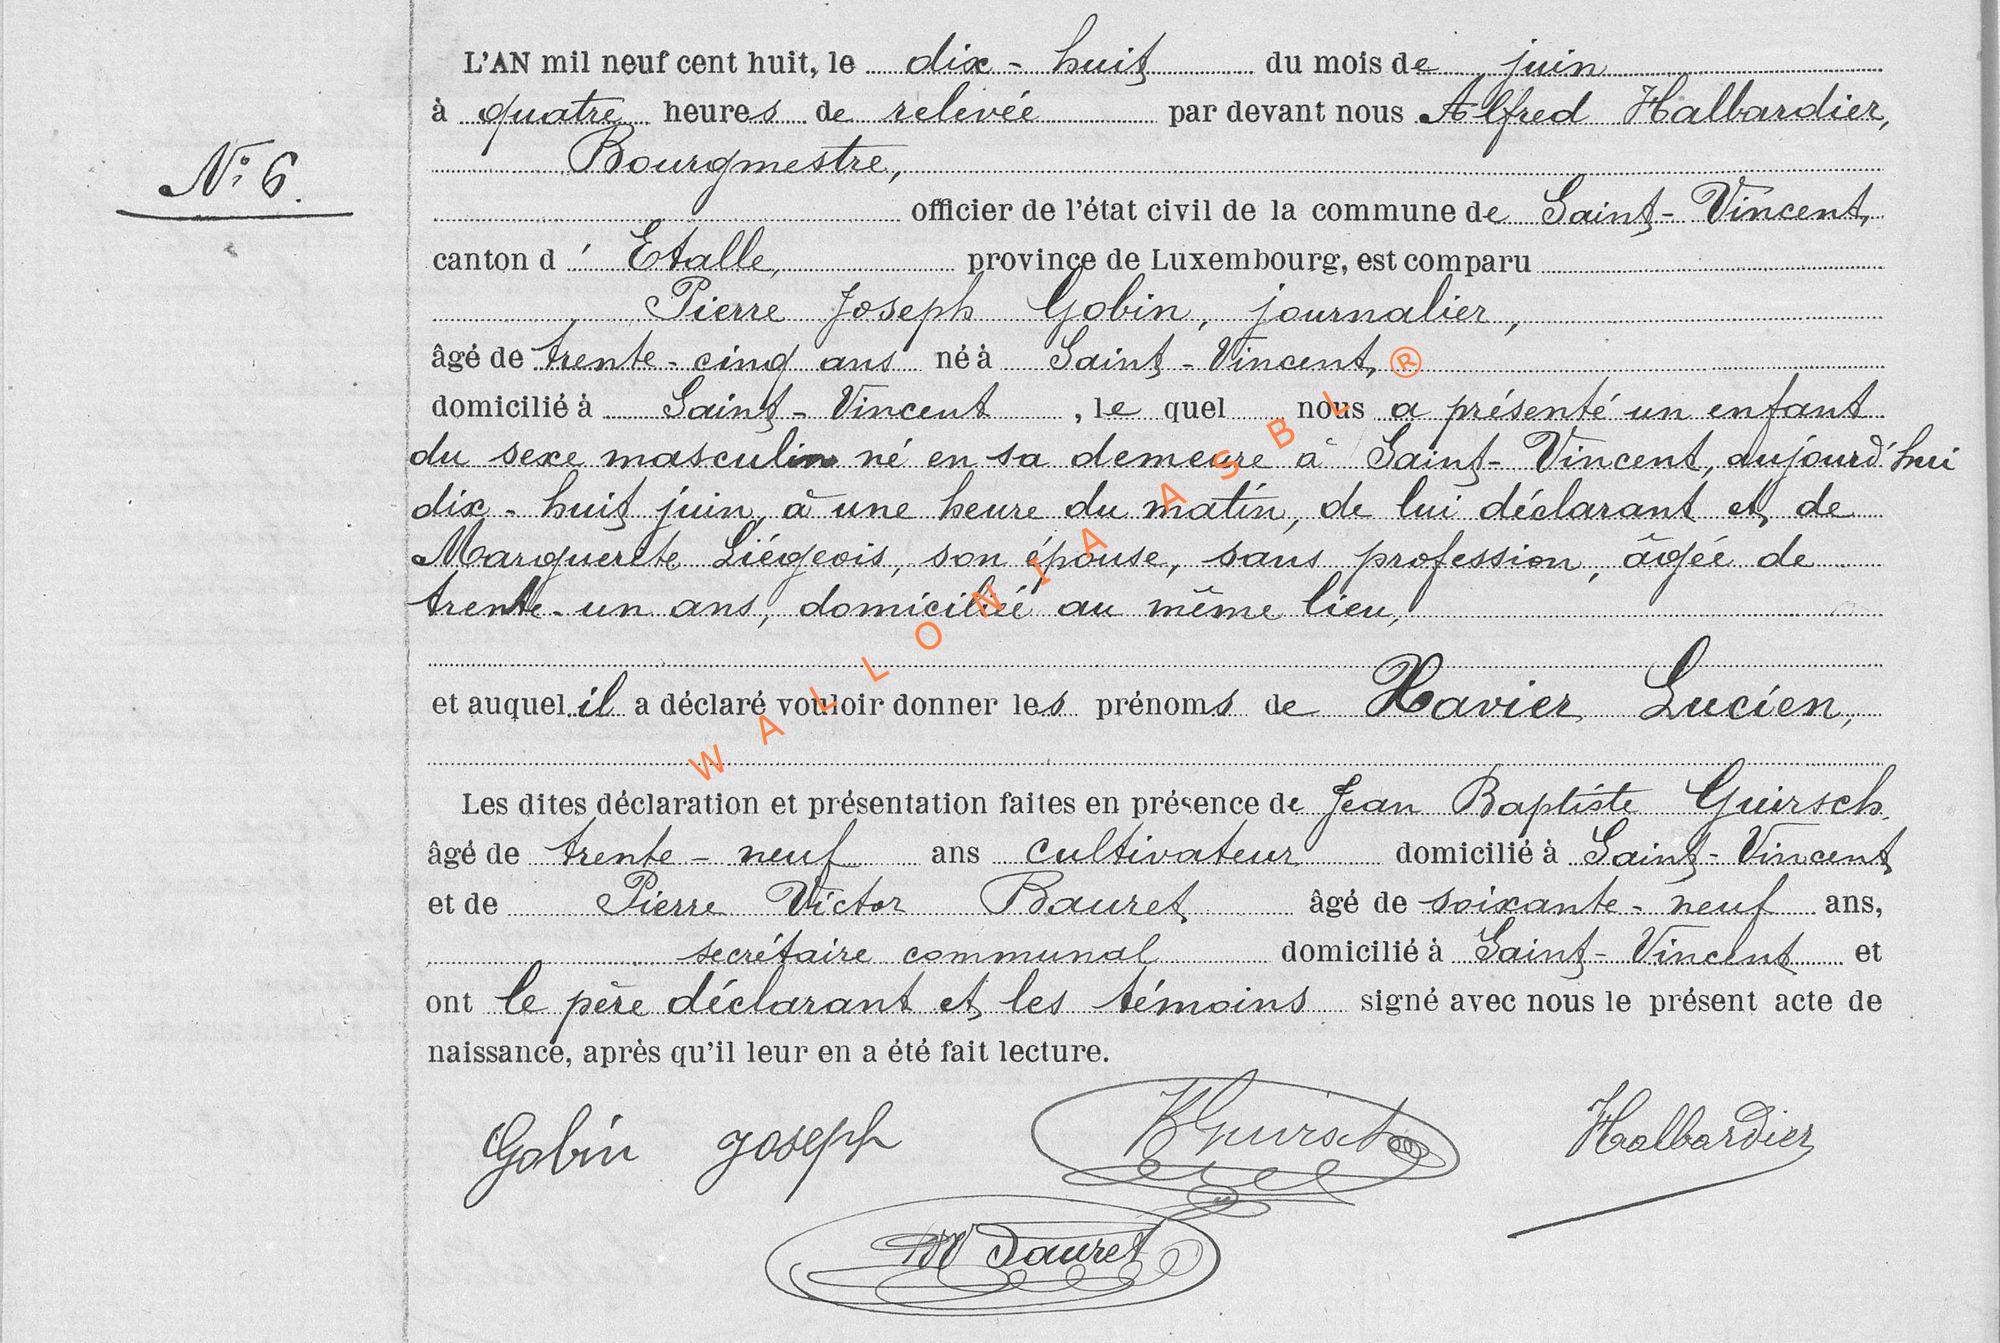 L'AN mil neuf cent huit, le dix-huit du mois de juin
à quatre heures de relevée par devant nous Alfred Halbardier,
Bourgmestre,
N° 6.
officier de l'état civil de la commune de Saint-Vincent,
canton d' Etalle, province de Luxembourg, est comparu
Pierre Joseph Gobin, journalier,
âgé de trente-cinq ans né à Saint-Vincent,
domicilié à Saint-Vincent, le quel nous a présenté un enfant
du sexe masculin né en sa demeure à Saint-Vincent, aujourd'hui
dix-huit juin, à une heure du matin, de lui déclarant et de
Marguerite Liégeois, son épouse, sans profession, âgée de
trente-un ans, domiciliée au même lieu,
et auquel il a déclaré vouloir donner les prénoms de Xavier Lucien,
Les dites déclaration et présentation faites en présence de Jean Baptiste Guirsch,
âgé de trente-neuf ans cultivateur domicilié à Saint-Vincent
et de Pierre Victor Bauret âgé de soixante-neuf ans,
secrétaire communal domicilié à Saint-Vincent et
ont le père déclarant et les témoins signé avec nous le présent acte de
naissance, après qu'il leur en a été fait lecture.
Gobin Joseph Guirsch Halbardier
Bauret
WALLONIA ASBL ®